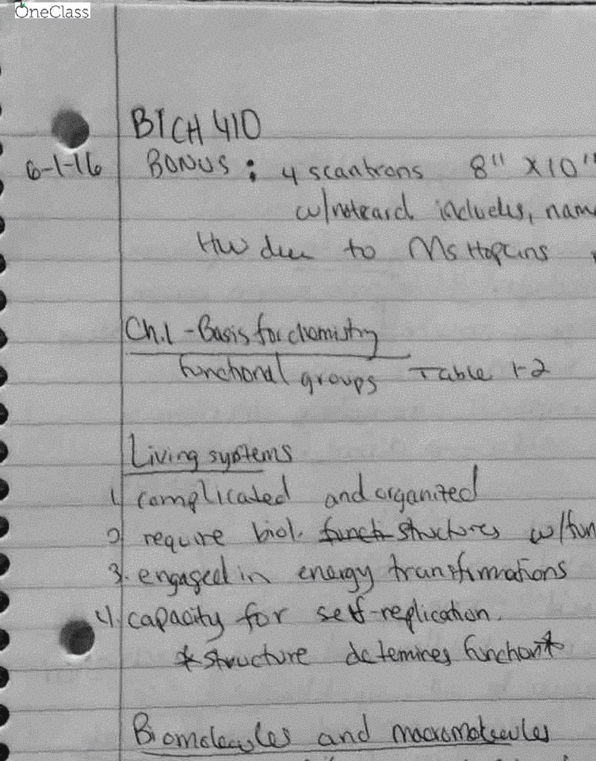 OneClass
BICH 410
6-1-16 BONUS: 4 scantrons 8" x 10"
w/notecard includes, nam
HW due to Ms Hopkins
Ch.1 - Basis for chemistry
functional groups Table 1-2
Living systems
1. complicated and organized
2. require biol. funct structures w/fun
3. engaged in energy transformations
4. capacity for self-replication.
*structure determines function*
Biomolecules and macromolecules